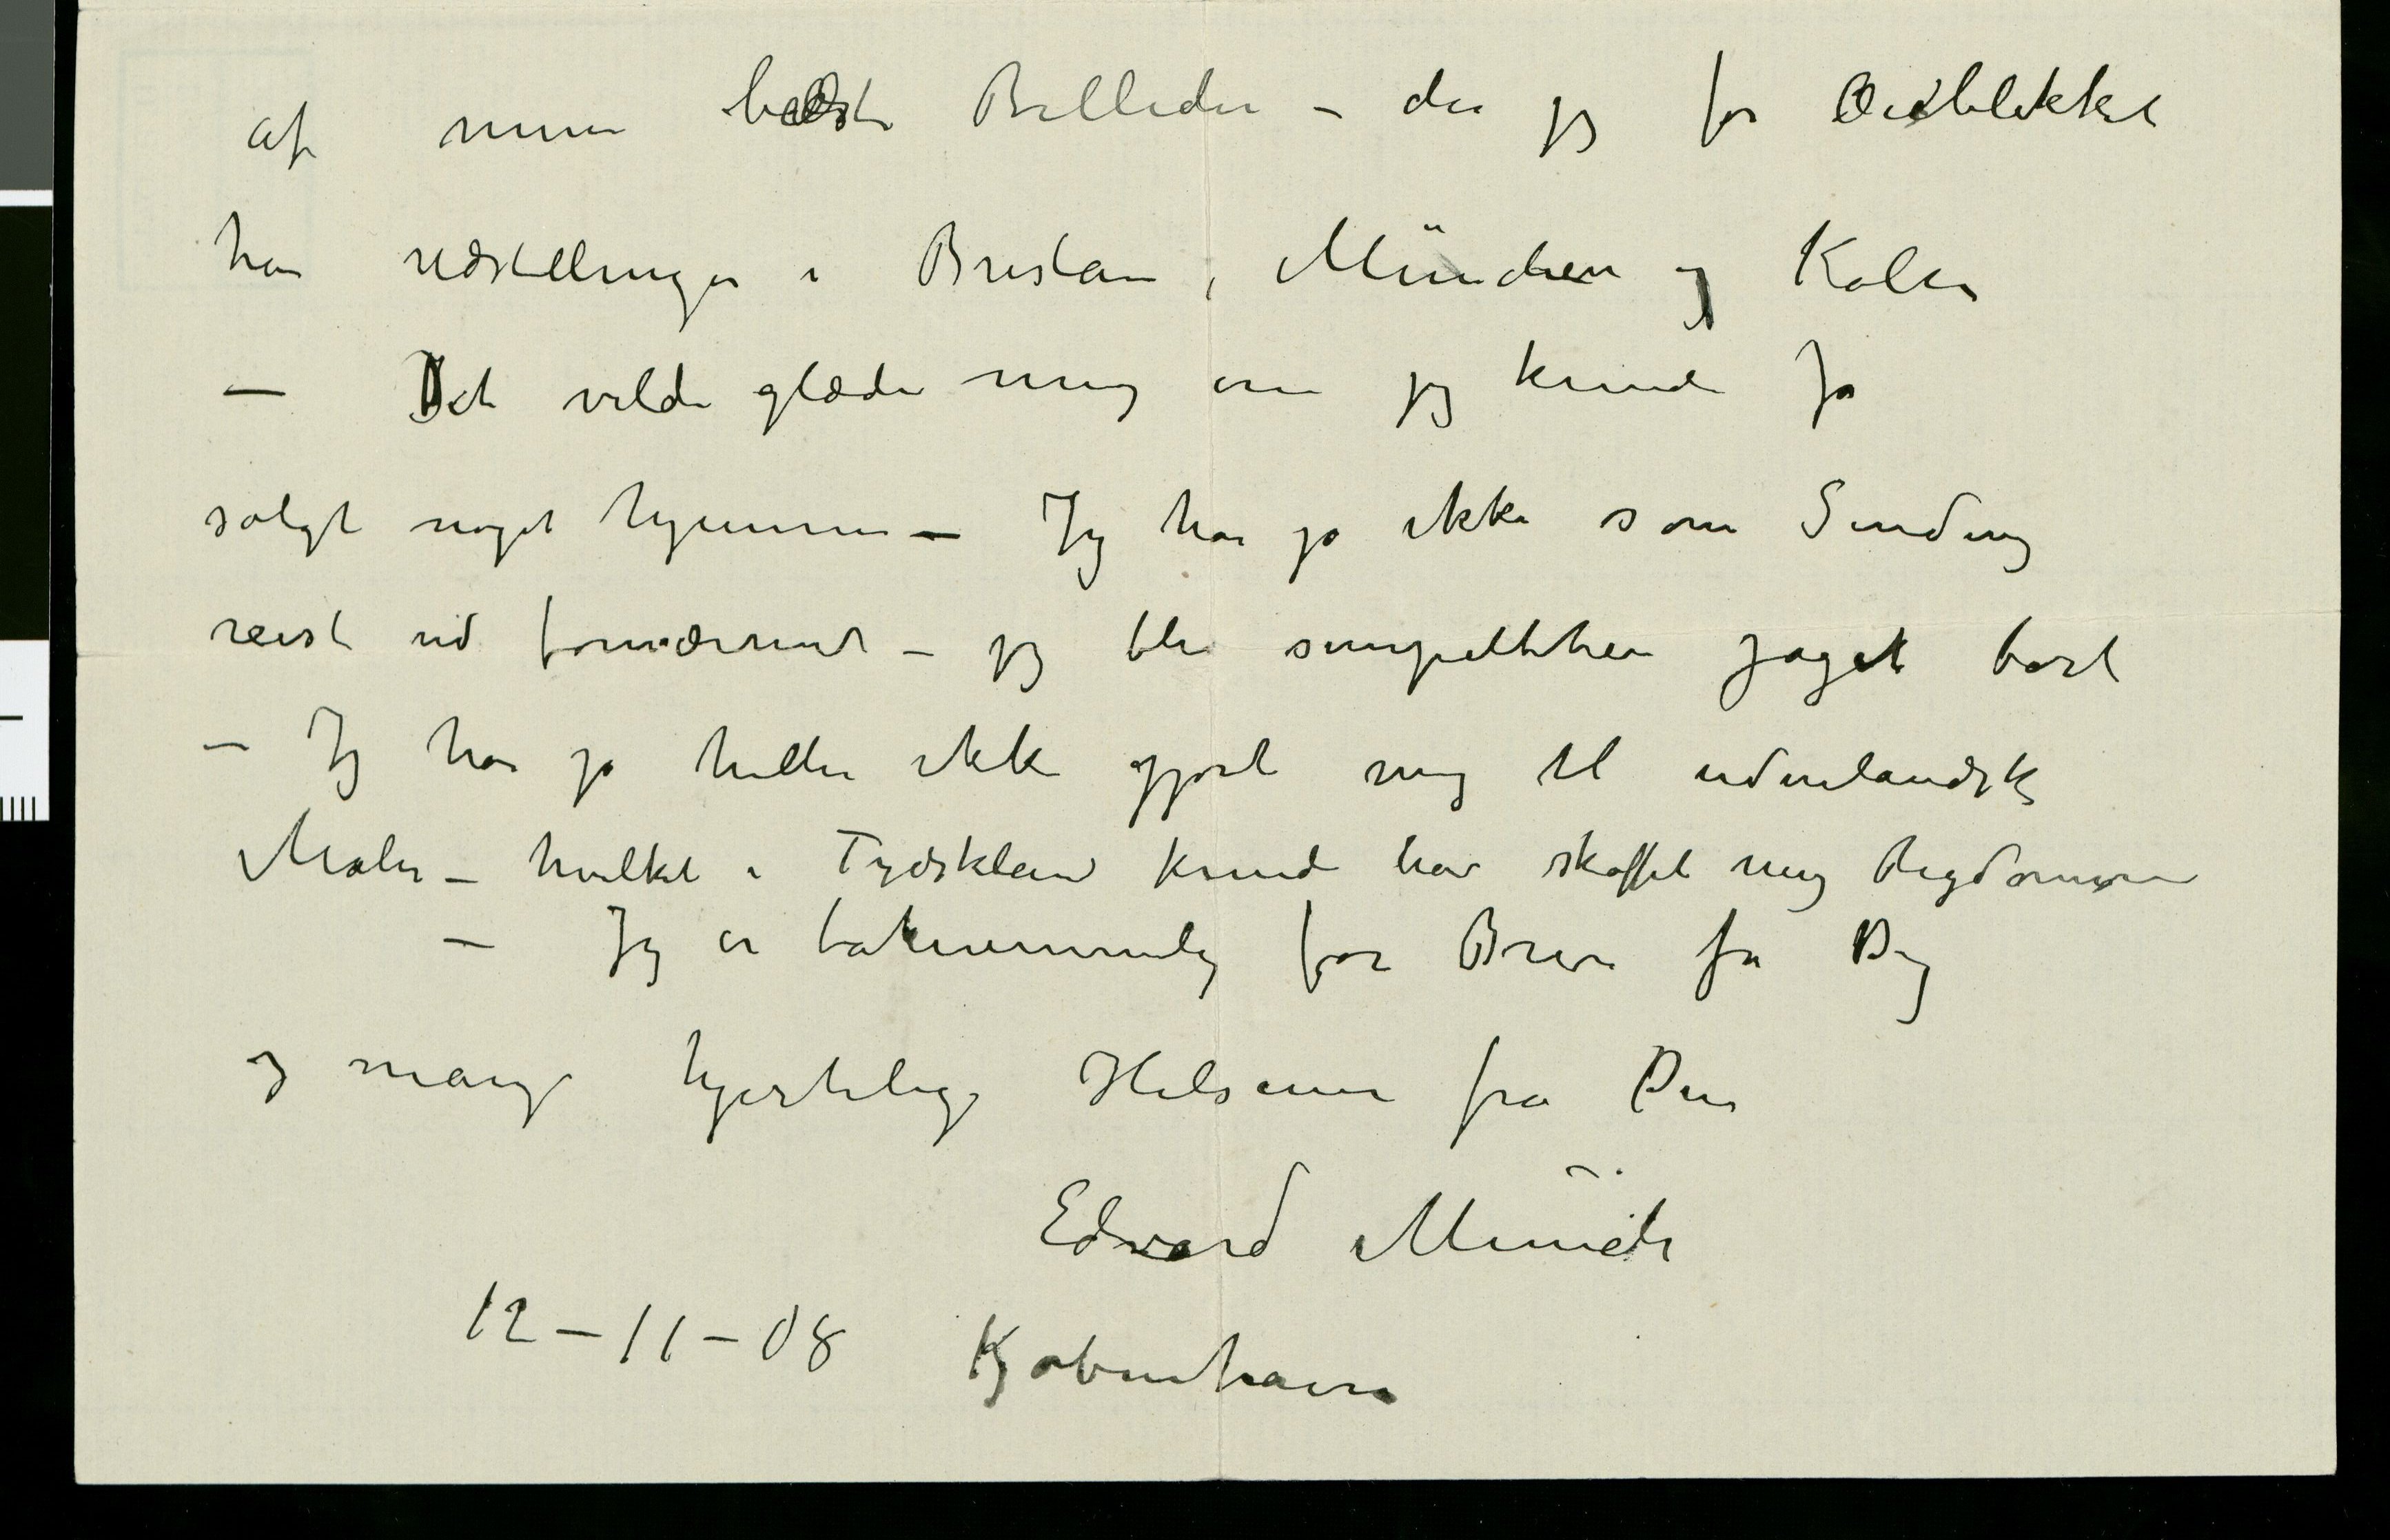 af mine bedste Billeder – da jeg for Øieblikket
har udstillinger i Breslau, München og Køln
– Det vilde glæde mig om jeg kunde få
solgt noget hjemme – Jeg har jo ikke som Sinding
reist ud fornærmet – jeg ble simpelthen jaget bort
– Jeg har jo heller ikke gjort mig til udenlandsk
Maler – hvilket i Tydskland kunde have skaffet mig Rigdomme
– Jeg er taknemmelig for Breve fra Dig
og mange hjertelige Hilsener fra Din
Edvard Munch
12–11–08 Kjøbenhavn